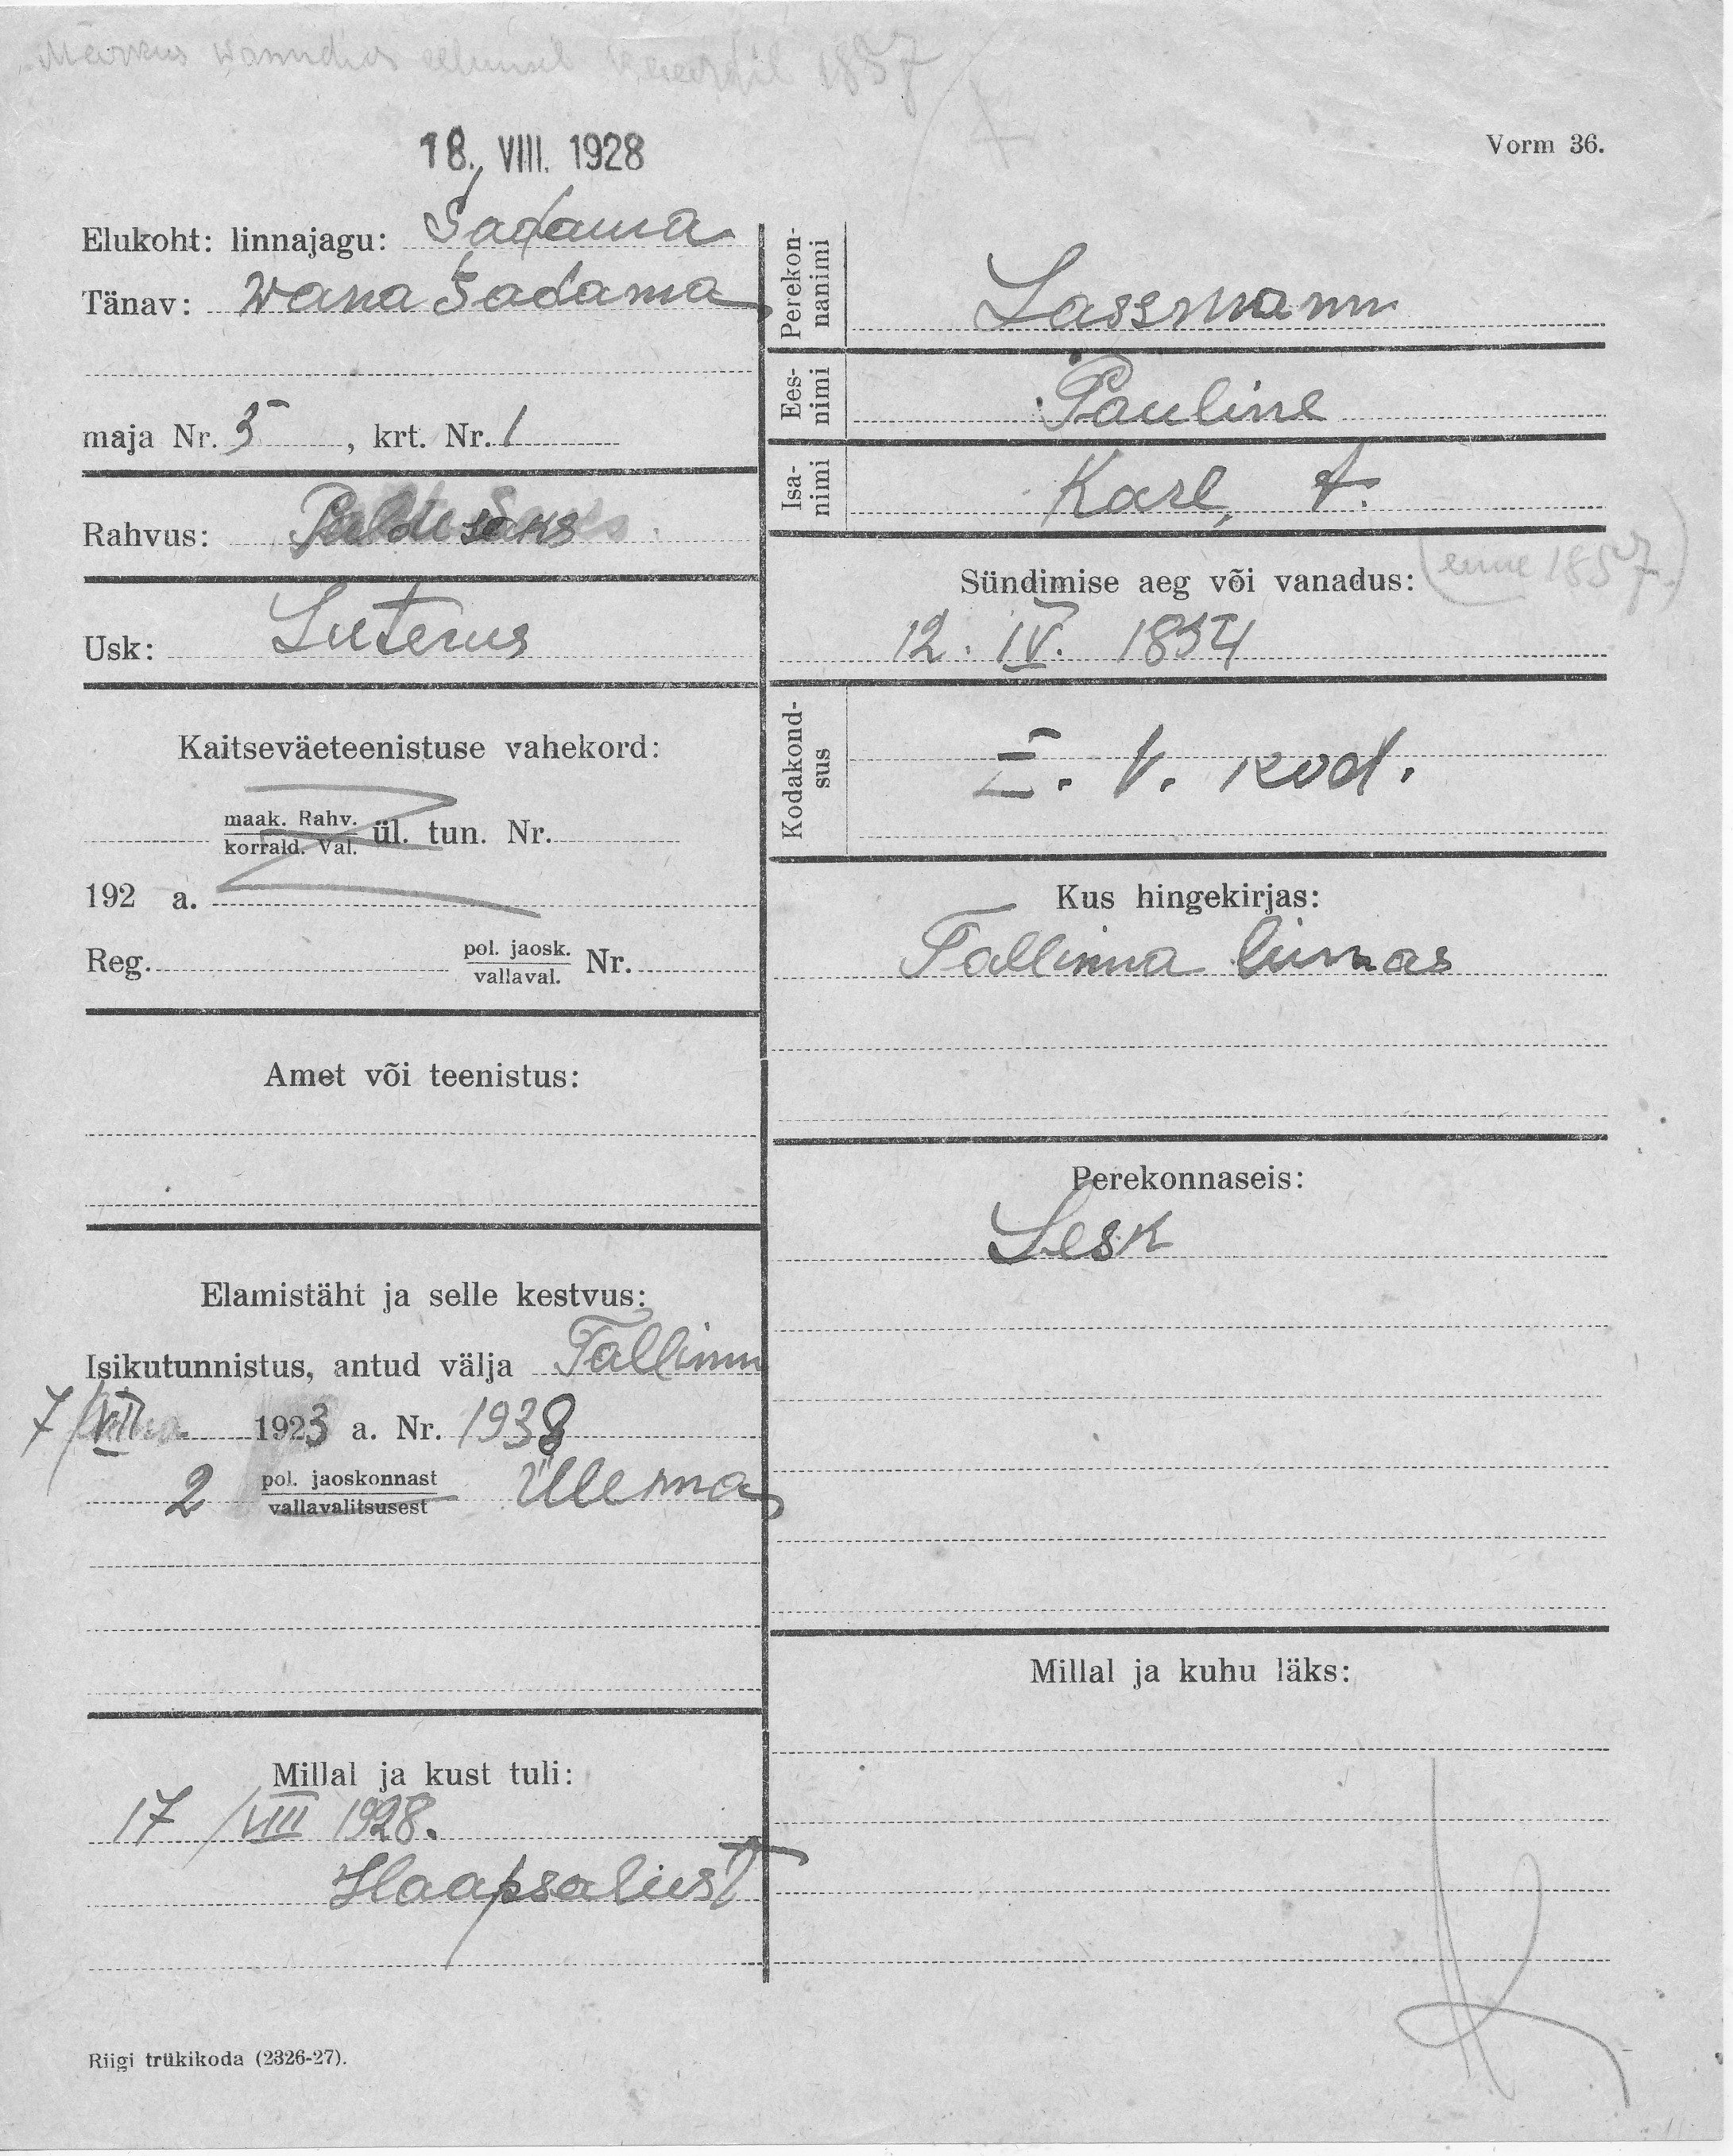 18. VIII. 1928
Vorm 36.
Elukoht: linnajagu: Sadama
Tänav: Wana Sadama
maja Nr. 5, krt. Nr. 1
Rahvus: saks
Usk: Luterus
Kaitseväeteenistuse vahekord:
maak. Rahv.
korrald. Val. ül. tun. Nr.
192 a.
Reg. pol. jaosk.
vallaval. Nr.
Amet või teenistus:
Elamistäht ja selle kestvus:
Isikutunnistus, antud välja Tallinn
7/VII 1923 a. Nr. 1938
2 pol. jaoskonnast
vallavalitsusest Ülema
Millal ja kust tuli:
17/VIII 1928.
Haapsalust
Riigi trükikoda (2326-27).
Perekon-
nanimi
Lassmann
Ees-
nimi
Pauline
Isa-
nimi
Karl, t.
Sündimise aeg või vanadus: (enne 1857.)
12. IV. 1854
Kodakond-
sus
E. V. kod.
Kus hingekirjas:
Tallinna linnas
Perekonnaseis:
Lesk
Millal ja kuhu läks: